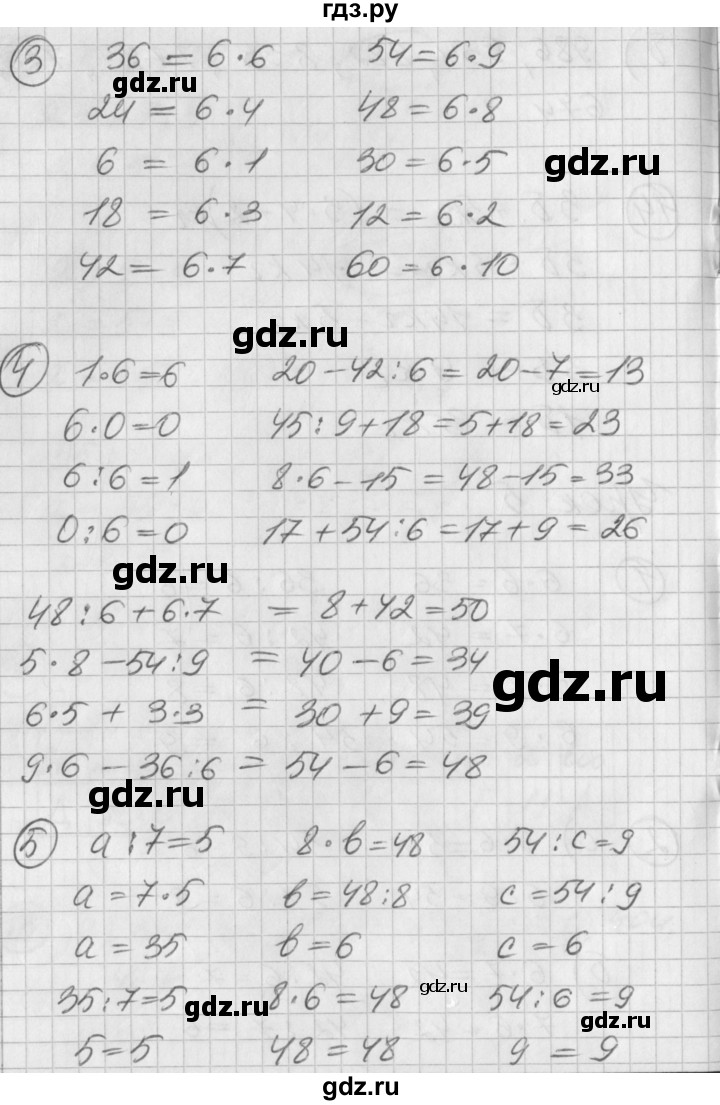 гдз.ру
③ 36 = 6·6 54 = 6·9
gdz.ru
24 = 6·4 48 = 6·8
6 = 6·1 30 = 6·5 gdz.ru
18 = 6·3 12 = 6·2
gdz.ru
42 = 6·7 60 = 6·10
gdz.ru
④ 1·6=6 20-42:6 = 20-7=13
gdz.ru
6·0=0 45:9+18=5+18=23
6:6=1 8·6-15=48-15=33
0:6=0 17+54:6=17+9=26
gdz.ru
48:6+6·7 = 8+42=50
5·8-54:9 = 40-6=34
gdz.ru
6·5+3·3 = 30+9=39
9·6-36:6 = 54-6=48
gdz.ru
⑤ a:7=5 8·в=48 54:c=9
a=7·5 в=48:8 c=54:9
a=35 в=6 c=6
35:7=5 8·6=48 54:6=9
gdz.ru gdz.ru gdz.ru
5=5 48=48 9=9
gdz.ru